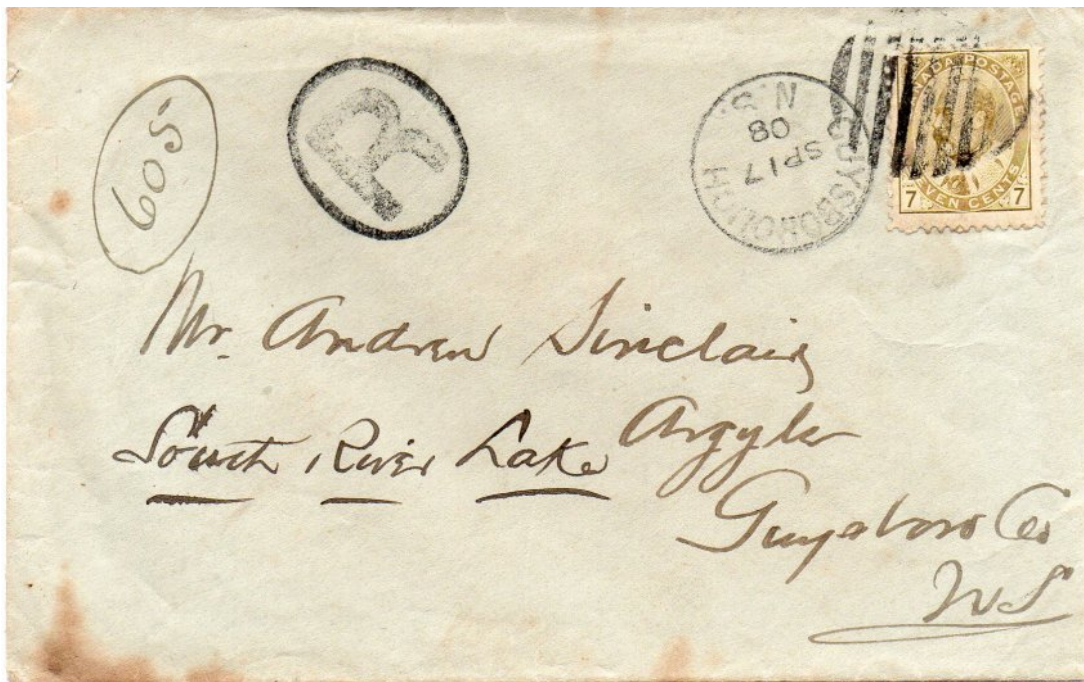 605
R
GUYSBOROUGH N.S.
SP 17
08
CANADA POSTAGE
SEVEN CENTS
7 7
Mr. Andrew Sinclair
South River Lake Argyle
Guysboro Co
N S